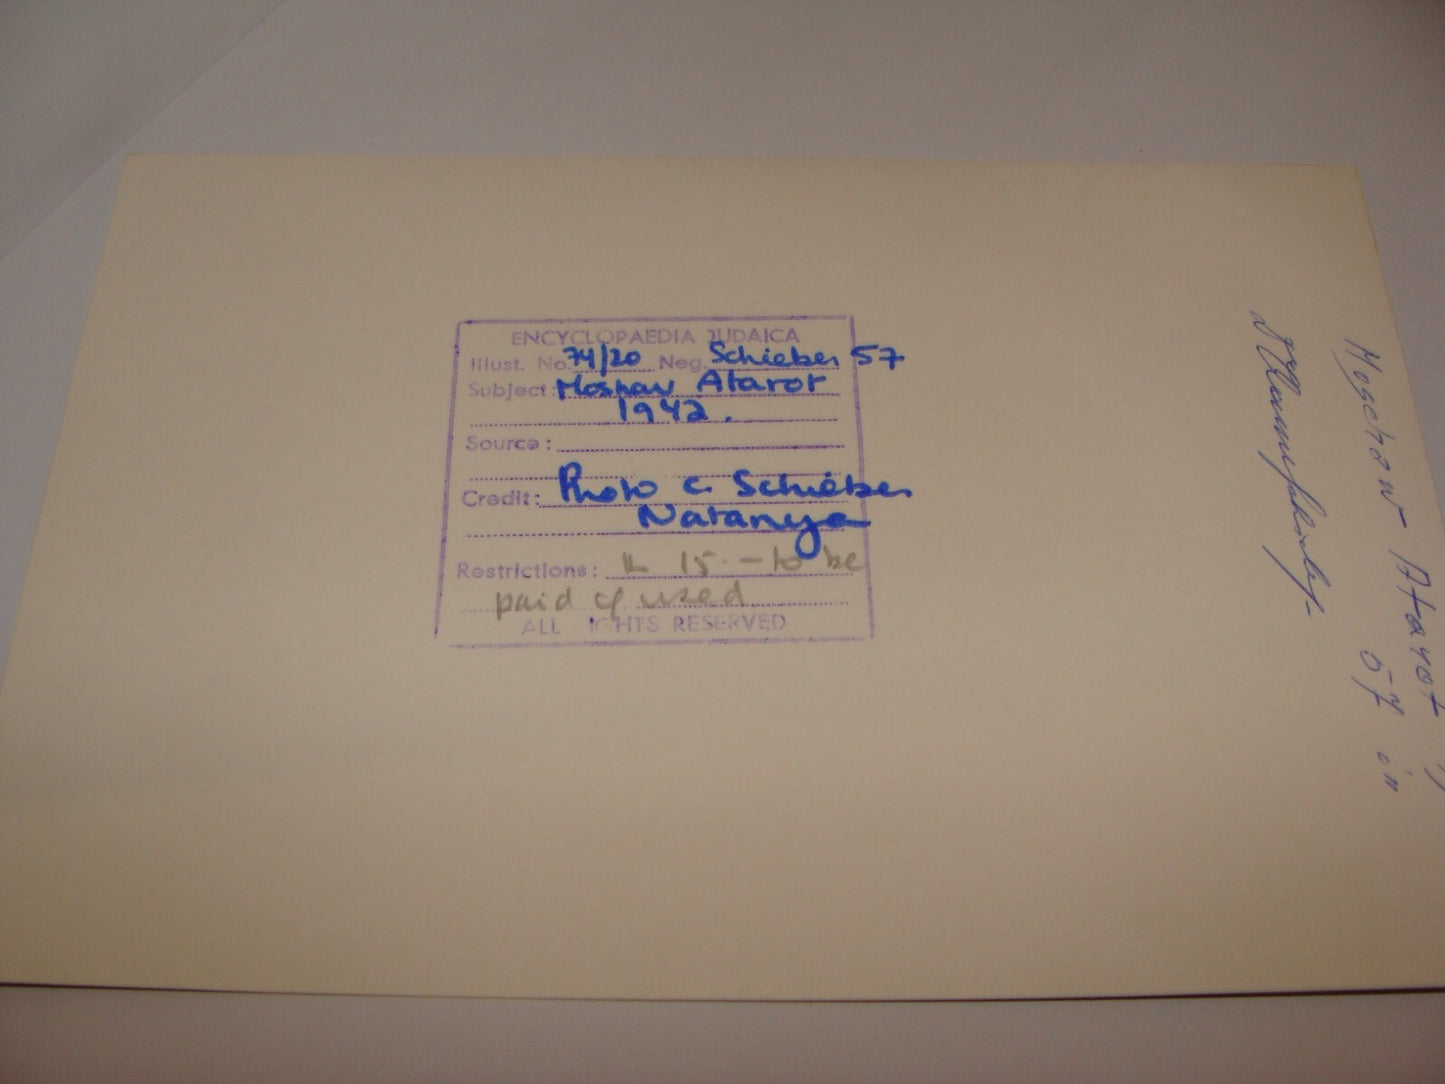 ENCYCLOPAEDIA JUDAICA
Illust. No. 74/20 Neg. Schieber 57
Subject: Moshav Atarot
1942.
Source:
Credit: Photo c. Schieber
Natanya
Restrictions: 15.- to be
paid if used
ALL RIGHTS RESERVED
Moschaw Atarot
57 in